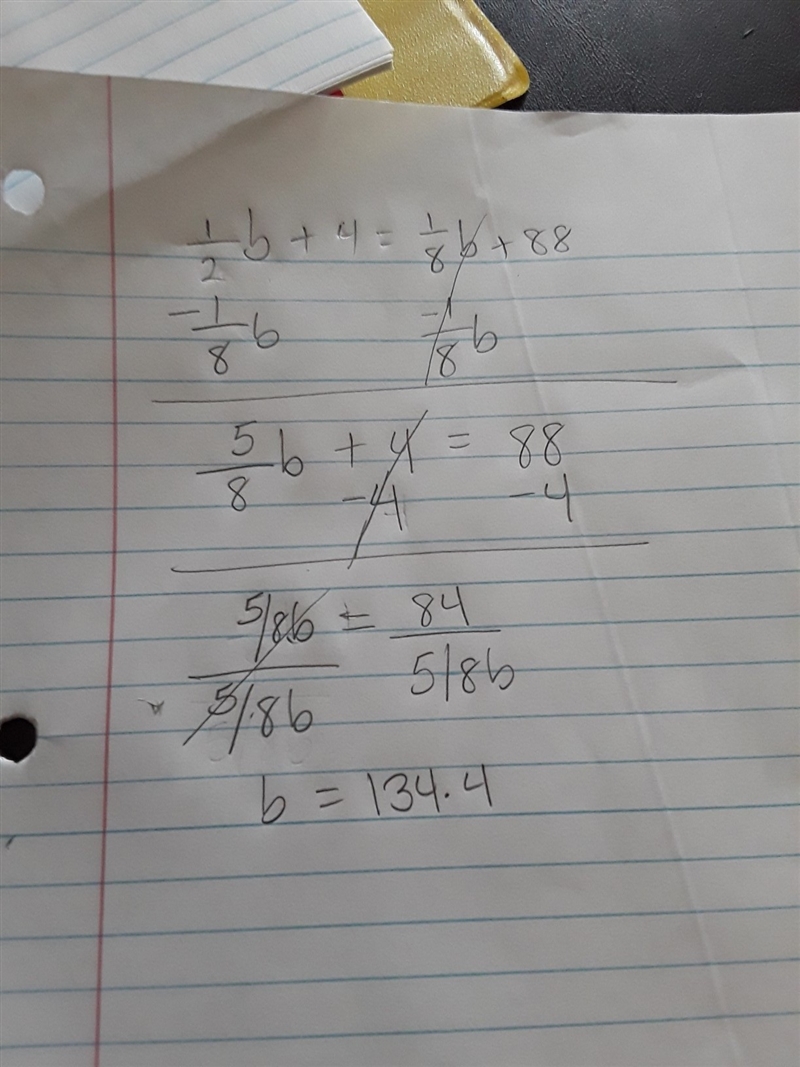 1/2 b + 4 = 1/8 b + 88
-1/8 b -1/8 b
5/8 b + 4 = 88
-4 -4
5/8b = 84
5/8b 5/8b
b = 134.4